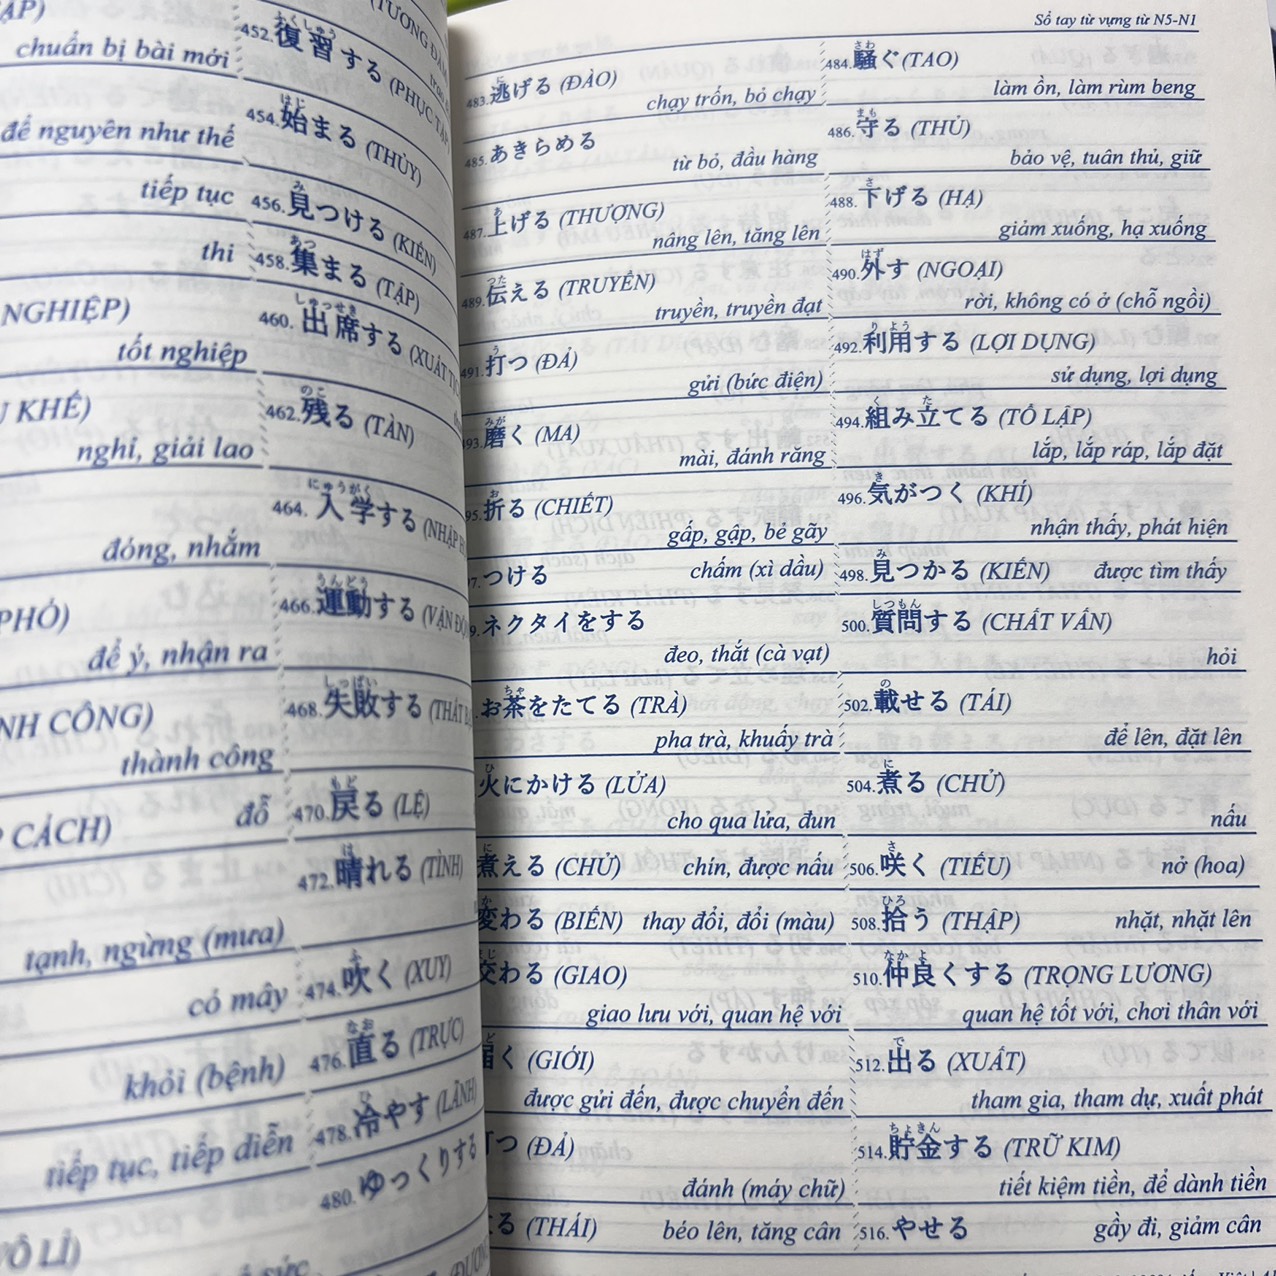 chuẩn bị bài mới
452.復習する (PHỤC TẬP)
ふくしゅう
để nguyên như thế
454.始まる (THỦY)
はじ
tiếp tục
456.見つける (KIẾN)
み
thi
458.集まる (TẬP)
あつ
NGHIỆP)
460. 出席する (XUẤT
しゅっせき
tốt nghiệp
KHẾ)
462.残る (TÀN)
のこ
nghỉ, giải lao
464. 入学する (NHẬP
にゅうがく
đóng, nhắm
PHÓ)
466.運動する (VẬN
うんどう
để ý, nhận ra
468.失敗する (THẤT
しっぱい
NH CÔNG)
thành công
CÁCH)
đỗ
470.戻る (LỆ)
もど
472.晴れる (TÌNH)
は
tạnh, ngừng (mưa)
có mây
474.吹く (XUY)
ふ
476.直る (TRỰC)
なお
khỏi (bệnh)
478.冷やす (LÃNH)
ひ
tiếp tục, tiếp diễn
480.ゆっくりする
Sổ tay từ vựng từ N5-N1
に
483.逃げる (ĐÀO)
chạy trốn, bỏ chạy
485.あきらめる
từ bỏ, đầu hàng
あ
487.上げる (THƯỢNG)
nâng lên, tăng lên
つた
489.伝える (TRUYỀN)
truyền, truyền đạt
う
491.打つ (ĐẢ)
gửi (bức điện)
みが
493.磨く (MA)
mài, đánh răng
お
95.折る (CHIẾT)
gấp, gập, bẻ gãy
7.つける chấm (xì dầu)
9.ネクタイをする
đeo, thắt (cà vạt)
ちゃ
お茶をたてる (TRÀ)
pha trà, khuấy trà
ひ
火にかける (LỬA)
cho quá lửa, đun
に
煮える (CHỬ) chín, được nấu
か
変わる (BIẾN) thay đổi, đổi (màu)
交わる (GIAO)
giao lưu với, quan hệ với
届く (GIỚI)
được gửi đến, được chuyển đến
打つ (ĐẢ)
đánh (máy chữ)
る (THÁI) béo lên, tăng cân
さわ
484.騒ぐ (TAO)
làm ồn, làm rùm beng
まも
486.守る (THỦ)
bảo vệ, tuân thủ, giữ
さ
488.下げる (HẠ)
giảm xuống, hạ xuống
はず
490.外す (NGOẠI)
rời, không có ở (chỗ ngồi)
り よう
492.利用する (LỢI DỤNG)
sử dụng, lợi dụng
く た
494.組み立てる (TỔ LẬP)
lắp, lắp ráp, lắp đặt
き
496.気がつく (KHÍ)
nhận thấy, phát hiện
み
498.見つかる (KIẾN) được tìm thấy
しつもん
500.質問する (CHẤT VẤN)
hỏi
の
502.載せる (TÁI)
để lên, đặt lên
に
504.煮る (CHỬ)
nấu
さ
506.咲く (TIẾU) nở (hoa)
ひろ
508.拾う (THẬP) nhặt, nhặt lên
なか よ
510.仲良くする (TRỌNG LƯƠNG)
quan hệ tốt với, chơi thân với
で
512.出る (XUẤT)
tham gia, tham dự, xuất phát
ちょきん
514.貯金する (TRỮ KIM)
tiết kiệm tiền, để dành tiền
516.やせる gầy đi, giảm cân